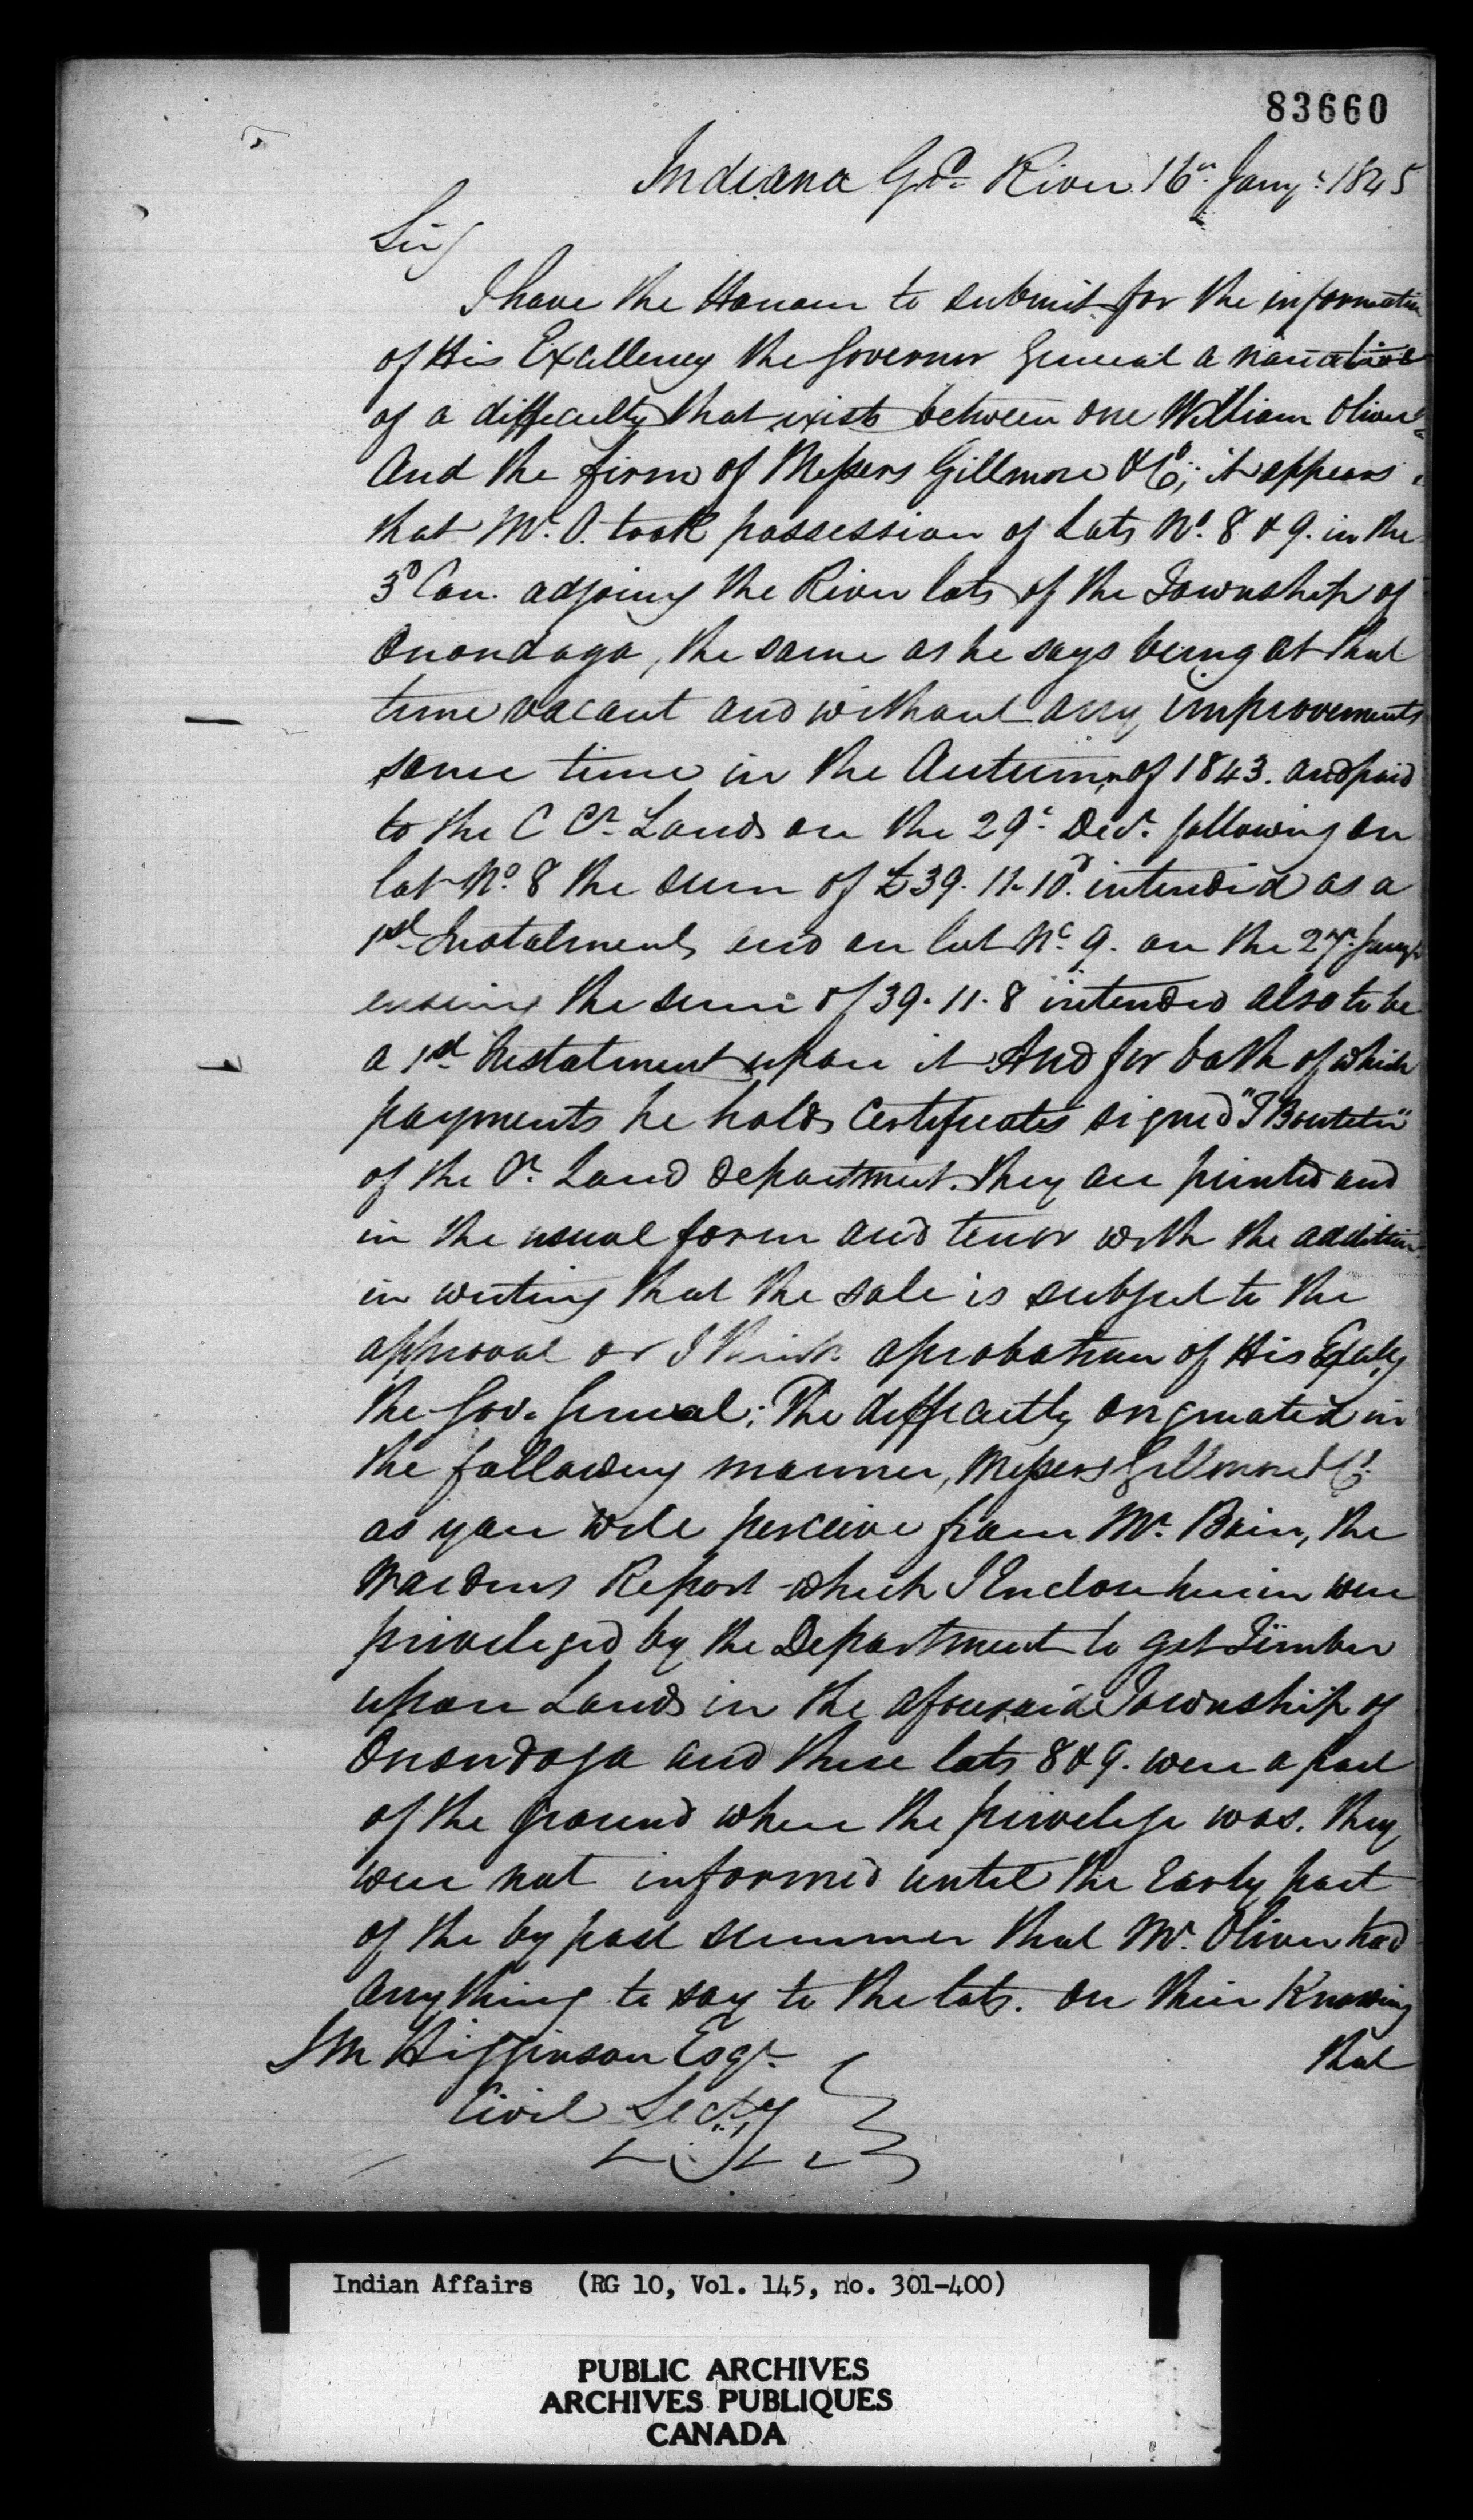 83660
Indiana Gd. River 16th Jany. 1845
Sir/
I have the Honour to submit for the information
of His Excellency the Governor General a narrative
of a difficulty that exists between one William Oliver
And the firm of Messrs Gillmore & Co; it appears
that Mr. O. took possession of Lots No. 8 & 9. in the
3d Con. adjoing the River lots of the Township of
Onondaga, the same as he says being at that
time vacant and without any improvements
some time in the Autumn of 1843. and paid
to the C Cn. Lands on the 29th Decr. following on
lot No. 8 the sum of £39. 11. 10d. intended as a
1st Instalment, and on lot No. 9. on the 27th Jany
ensuing the sum of 39. 11. 8 intended also to be
a 1st Instalment upon it And for both of which
payments he holds Certificates signed "T Bouteter"
of the Cn. Land Department. they are printed and
in the usual form and tenor with the addition
in writing that the sale is subject to the
approval or I think aprobation of His Excelly
the Gov. General; The difficulty originated in
the following manner, Messrs Gillmore & Co.
as you will perceive from Mr. Bain, the
Wardens Report which I Enclose herein were
priveleged by the Department to get Timber
upon Lands in the aforesaid Township of
Onondaga and these lots 8 & 9. were a part
of the ground where the privelege was. they
were not informed until the Early part
of the by past summer that Mr. Oliver had
anything to say to the lots. on their Knowing
that
J M Higginson Esqr.
Civil Secty
Indian Affairs (RG 10, Vol. 145, no. 301-400)
PUBLIC ARCHIVES
ARCHIVES PUBLIQUES
CANADA